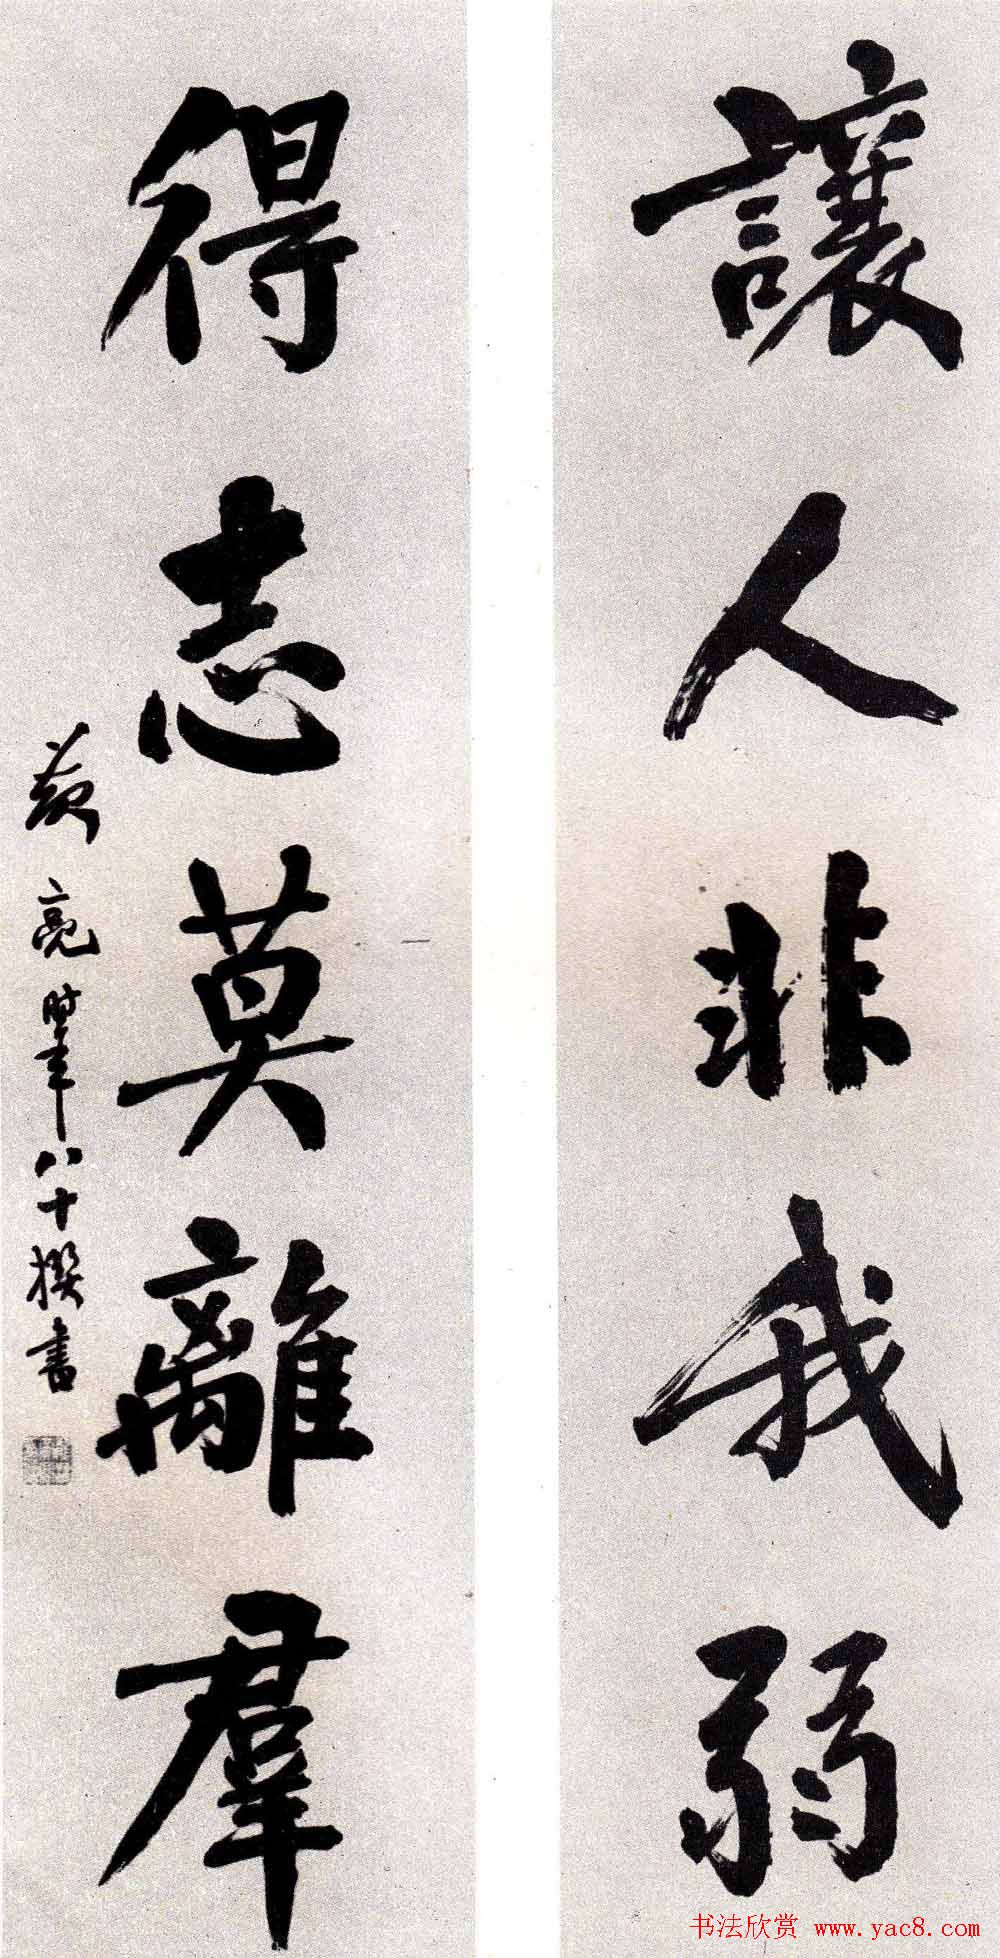 讓人非我弱
得志莫離羣
黃亮時年八十撰書
书法欣赏 www.yac8.com